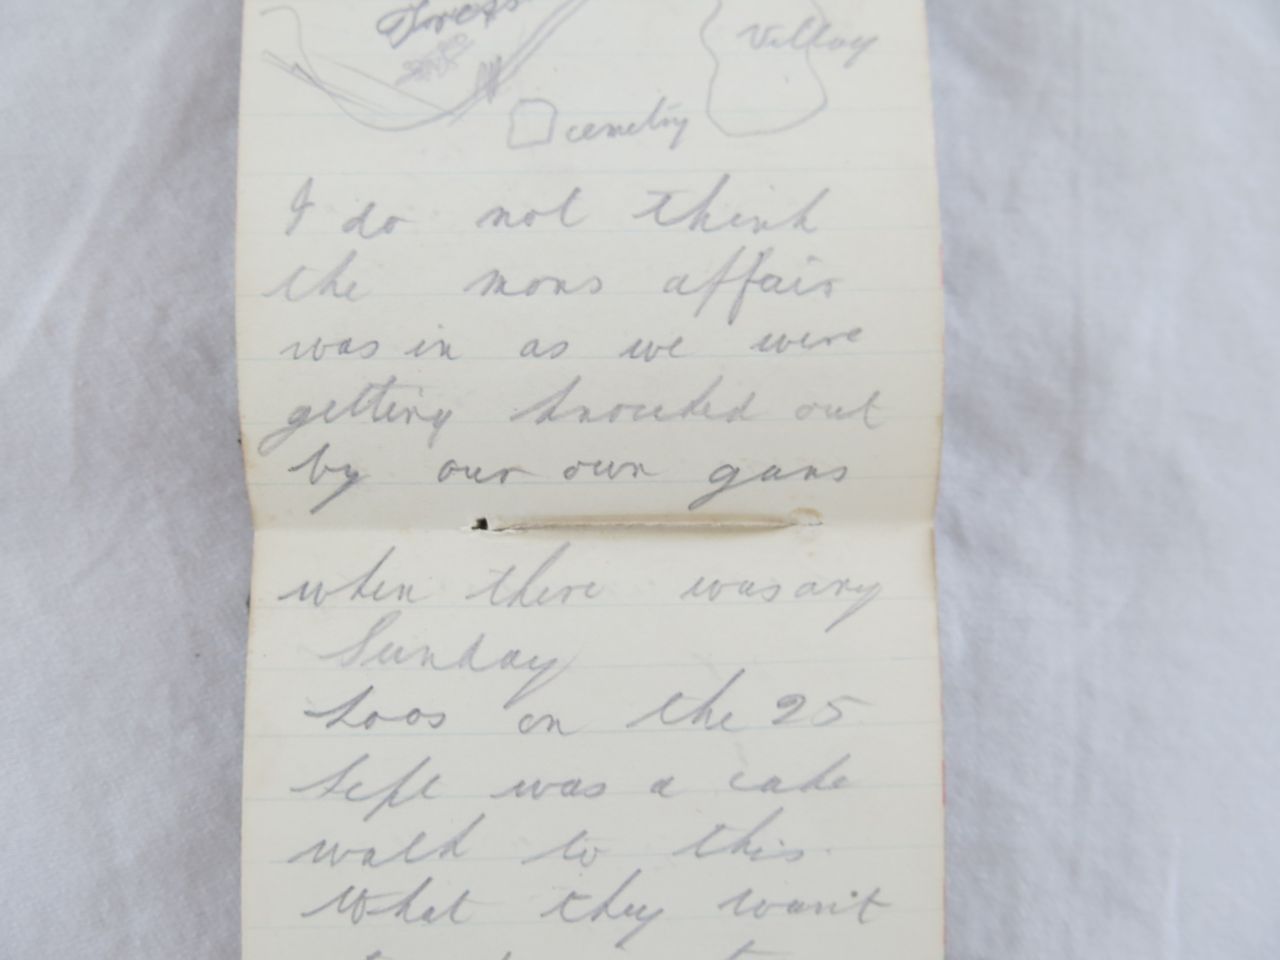 Village
cemetry
I do not think
the mons affair
was in as we were
getting knocked out
by our own guns
when there was any
Sunday
Loos on the 25
Sept was a cake
walk to this.
What they want